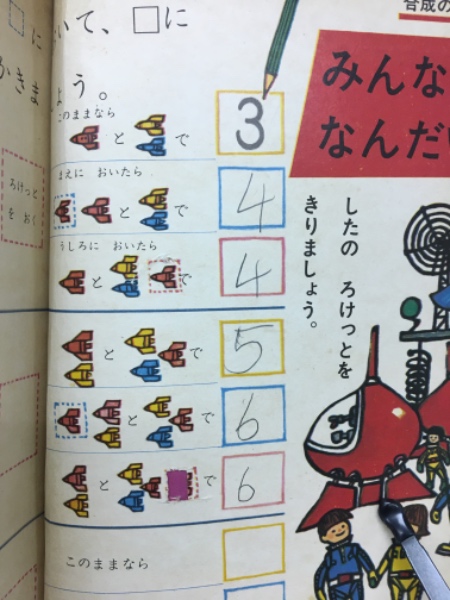 合成の
みんな
なんだい
したの ろけっとを
きりましょう。
いて、□に
ょう。
□に
かきま
ろけっと
を おく
このままなら
と で 3
まえに おいたら
と で 4
うしろに おいたら
と で 4
と で 5
と で 6
と で 6
このままなら